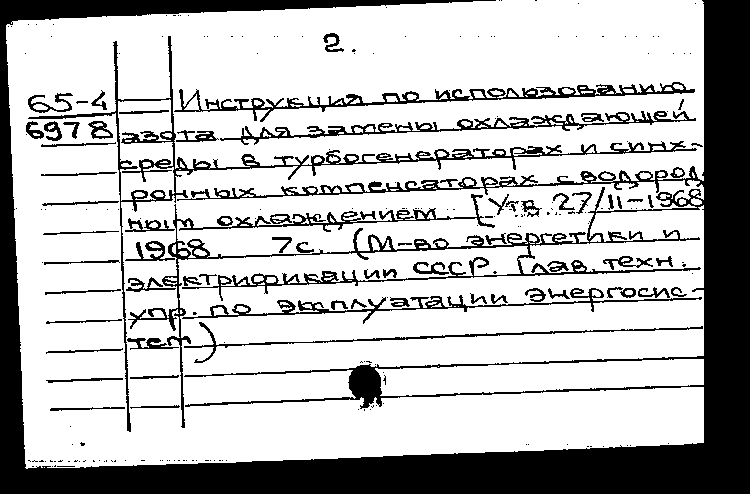 2.
65-4
6978
Инструкция по использованию
азота для замены охлаждающей
среды в турбогенераторах и синх-
ронных компенсаторах с водород-
ным охлаждением. [Утв. 27/II-1968
1968. 7с. (М-во энергетики и
электрификации СССР. Глав. техн.
упр. по эксплуатации энергосис-
тем).